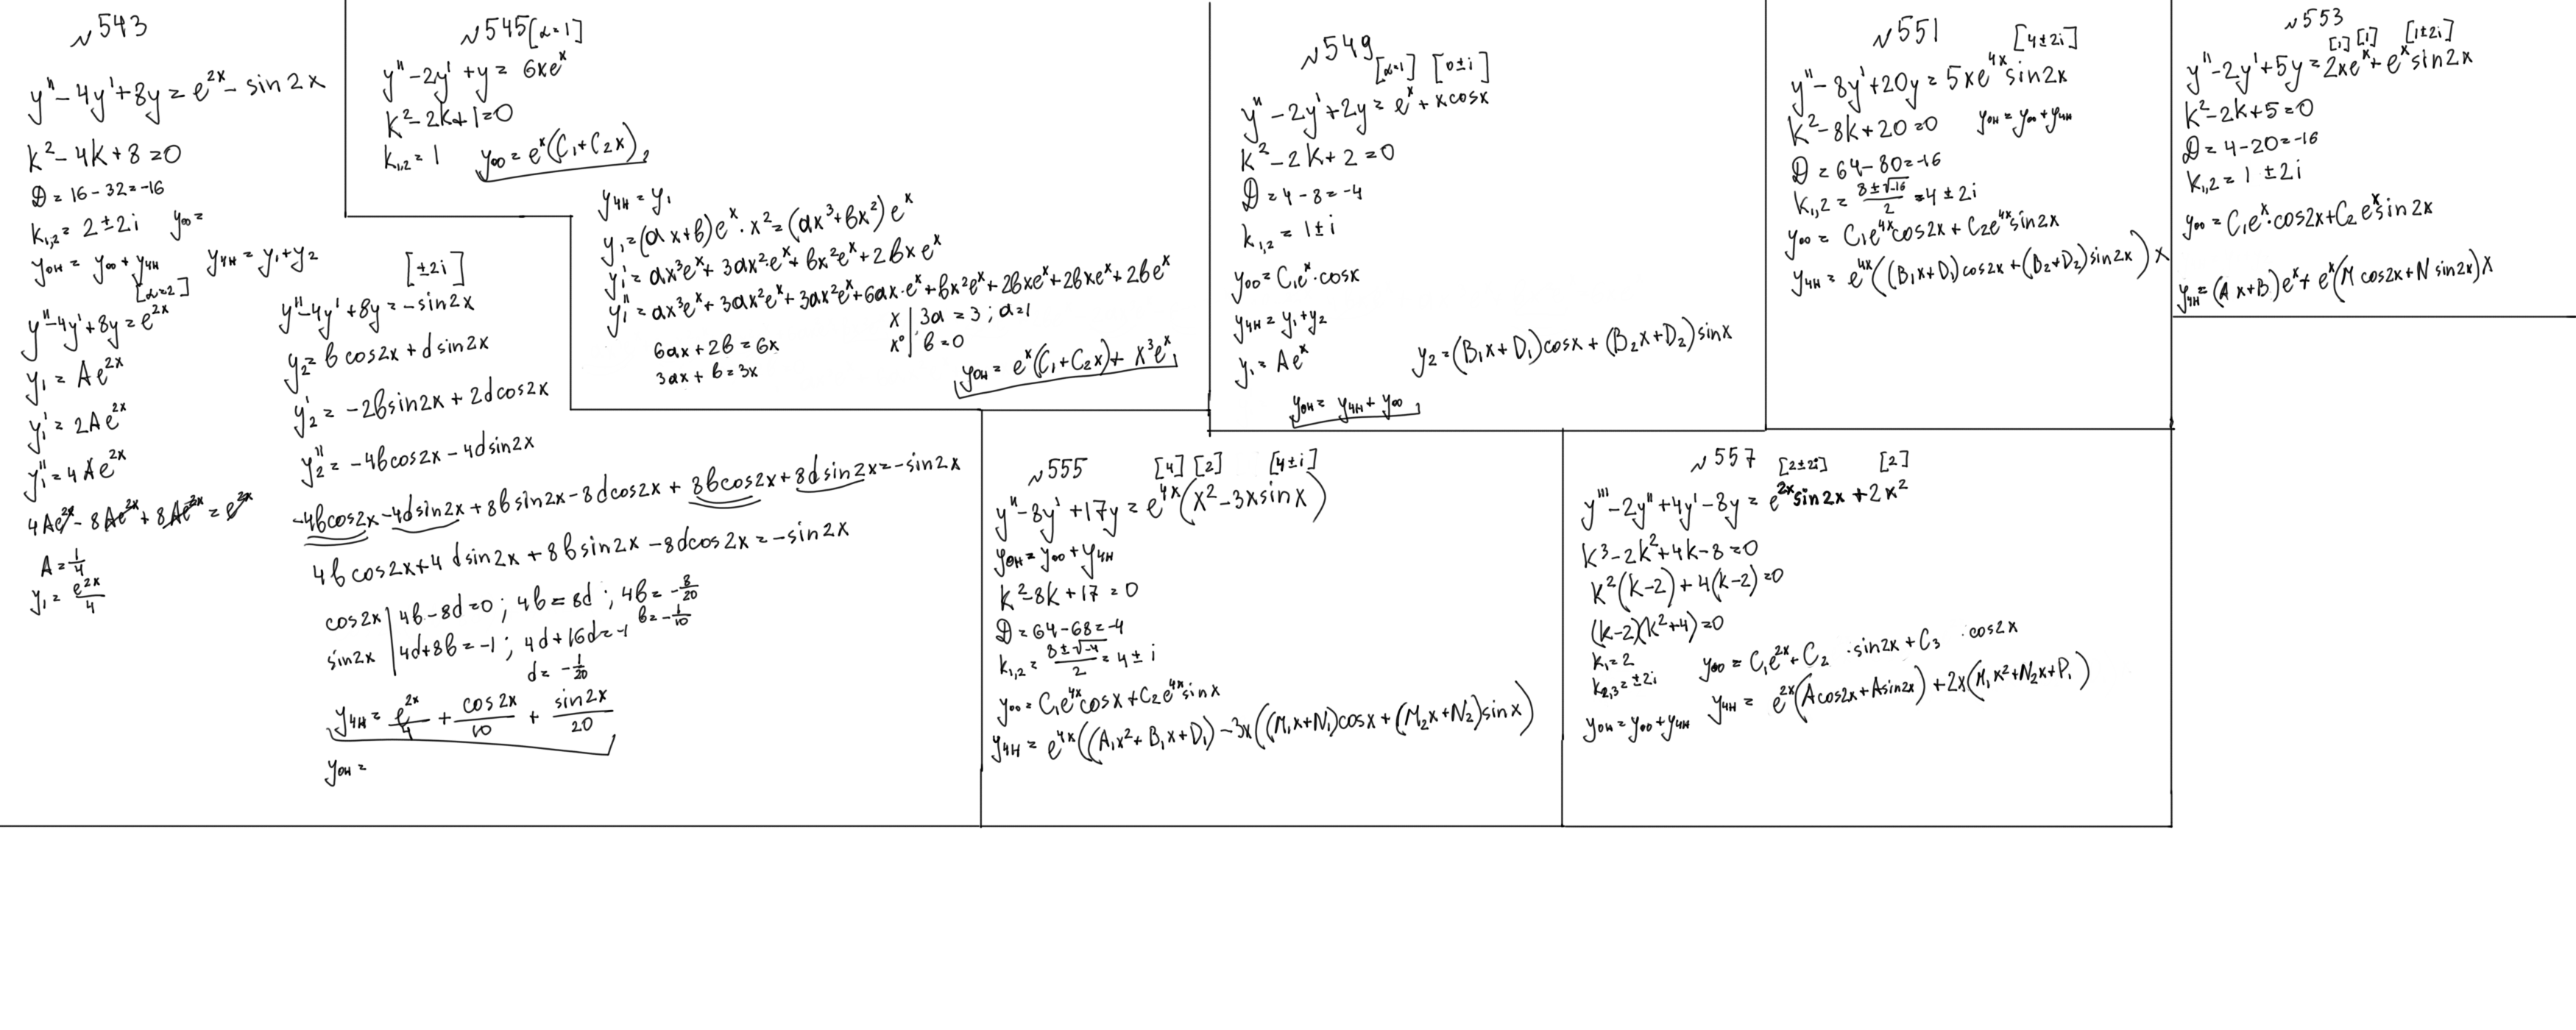 №543
y'' - 4y' + 8y = e^{2x} - sin2x
k² - 4k + 8 = 0
D = 16 - 32 = -16
k₁,₂ = 2 ± 2i   y₀₀ =
yон = y₀₀ + yчн   yчн = y₁ + y₂
[α=2]
y'' - 4y' + 8y = e^{2x}
y₁ = Ae^{2x}
y₁' = 2Ae^{2x}
y₁'' = 4Ae^{2x}
4Ae^{2x} - 8Ae^{2x} + 8Ae^{2x} = e^{2x}
A = 1/4
y₁ = e^{2x}/4
[±2i]
y'' - 4y' + 8y = -sin2x
y₂ = b cos2x + d sin2x
y₂' = -2b sin2x + 2d cos2x
y₂'' = -4b cos2x - 4d sin2x
-4b cos2x - 4d sin2x + 8b sin2x - 8d cos2x + 8b cos2x + 8d sin2x = -sin2x
4b cos2x + 4d sin2x + 8b sin2x - 8d cos2x = -sin2x
cos2x | 4b - 8d = 0 ; 4b = 8d ; 4b = -8/20
b = -1/10
sin2x | 4d + 8b = -1 ; 4d + 16d = -1
d = -1/20
yчн = e^{2x}/4 + cos2x/10 + sin2x/20
yон =
№545 [α=1]
y'' - 2y' + y = 6xe^x
k² - 2k + 1 = 0
k₁,₂ = 1   y₀₀ = e^x(C₁ + C₂x)
yчн = y₁
y₁ = (ax + b)e^x · x² = (ax³ + bx²)e^x
y₁' = ax³e^x + 3ax²·e^x + bx²e^x + 2bxe^x
y₁'' = ax³e^x + 3ax²e^x + 3ax²e^x + 6ax·e^x + bx²e^x + 2bxe^x + 2bxe^x + 2be^x
6ax + 2b = 6x
3ax + b = 3x
x | 3a = 3 ; a = 1
x⁰ | b = 0
yон = e^x(C₁ + C₂x) + x³e^x
№549
[α=1] [0±i]
y'' - 2y' + 2y = e^x + x cosx
k² - 2k + 2 = 0
D = 4 - 8 = -4
k₁,₂ = 1 ± i
y₀₀ = C₁e^x·cosx
yчн = y₁ + y₂
y₁ = Ae^x   y₂ = (B₁x + D₁)cosx + (B₂x + D₂)sinx
yон = yчн + y₀₀
№551 [4±2i]
y'' - 8y' + 20y = 5xe^{4x}sin2x
k² - 8k + 20 = 0   yон = y₀₀ + yчн
D = 64 - 80 = -16
k₁,₂ = (8 ± √-16)/2 = 4 ± 2i
y₀₀ = C₁e^{4x}cos2x + C₂e^{4x}sin2x
yчн = e^{4x}((B₁x + D₁)cos2x + (B₂ + D₂)sin2x)x
№553
[1] [1] [1±2i]
y'' - 2y' + 5y = 2xe^x + e^x sin2x
k² - 2k + 5 = 0
D = 4 - 20 = -16
k₁,₂ = 1 ± 2i
y₀₀ = C₁e^x·cos2x + C₂e^x sin2x
yчн = (Ax + B)e^x + e^x(M cos2x + N sin2x)x
№555 [4] [2] [4±i]
y'' - 8y' + 17y = e^{4x}(x² - 3x sinx)
yон = y₀₀ + yчн
k² - 8k + 17 = 0
D = 64 - 68 = -4
k₁,₂ = (8 ± √-4)/2 = 4 ± i
y₀₀ = C₁e^{4x}cosx + C₂e^{4x}sinx
yчн = e^{4x}((A₁x² + B₁x + D₁) - 3x((M₁x + N₁)cosx + (M₂x + N₂)sinx)
№557 [2±2i] [2]
y''' - 2y'' + 4y' - 8y = e^{2x}sin2x + 2x²
k³ - 2k² + 4k - 8 = 0
k²(k - 2) + 4(k - 2) = 0
(k - 2)(k² + 4) = 0
k₁ = 2   y₀₀ = C₁e^{2x} + C₂ · sin2x + C₃ · cos2x
k₂,₃ = ±2i
yон = y₀₀ + yчн   yчн = e^{2x}(A cos2x + A sin2x) + 2x(M₁x² + N₂x + P₁)